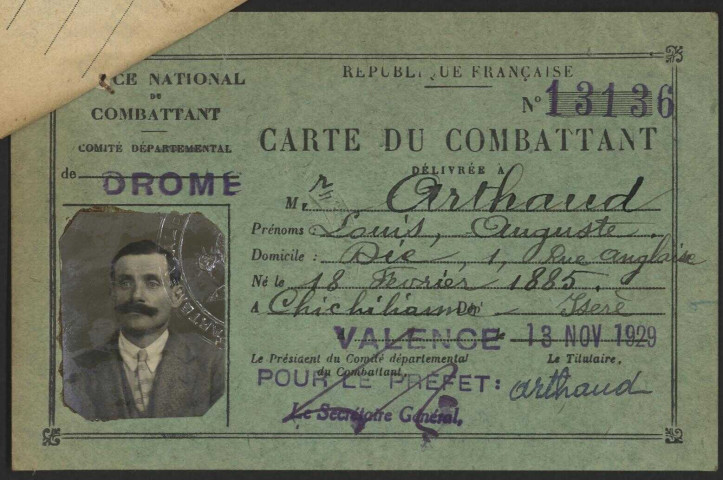 CE NATIONAL
DU
COMBATTANT
COMITÉ DÉPARTEMENTAL
de DROME
REPUBLIQUE FRANÇAISE
N° 13136
CARTE DU COMBATTANT
DÉLIVRÉE A
Mr Arthaud
Prénoms : Louis, Auguste.
Domicile : Die, 1, Rue anglaise
Né le 18 Fevrier 1885.
A Chichilianne Dt Isère
VALENCE le 13 NOV 1929
Le Président du Comité départemental
du Combattant,
Le Titulaire,
POUR LE PREFET:
arthaud
Le Secrétaire Général,